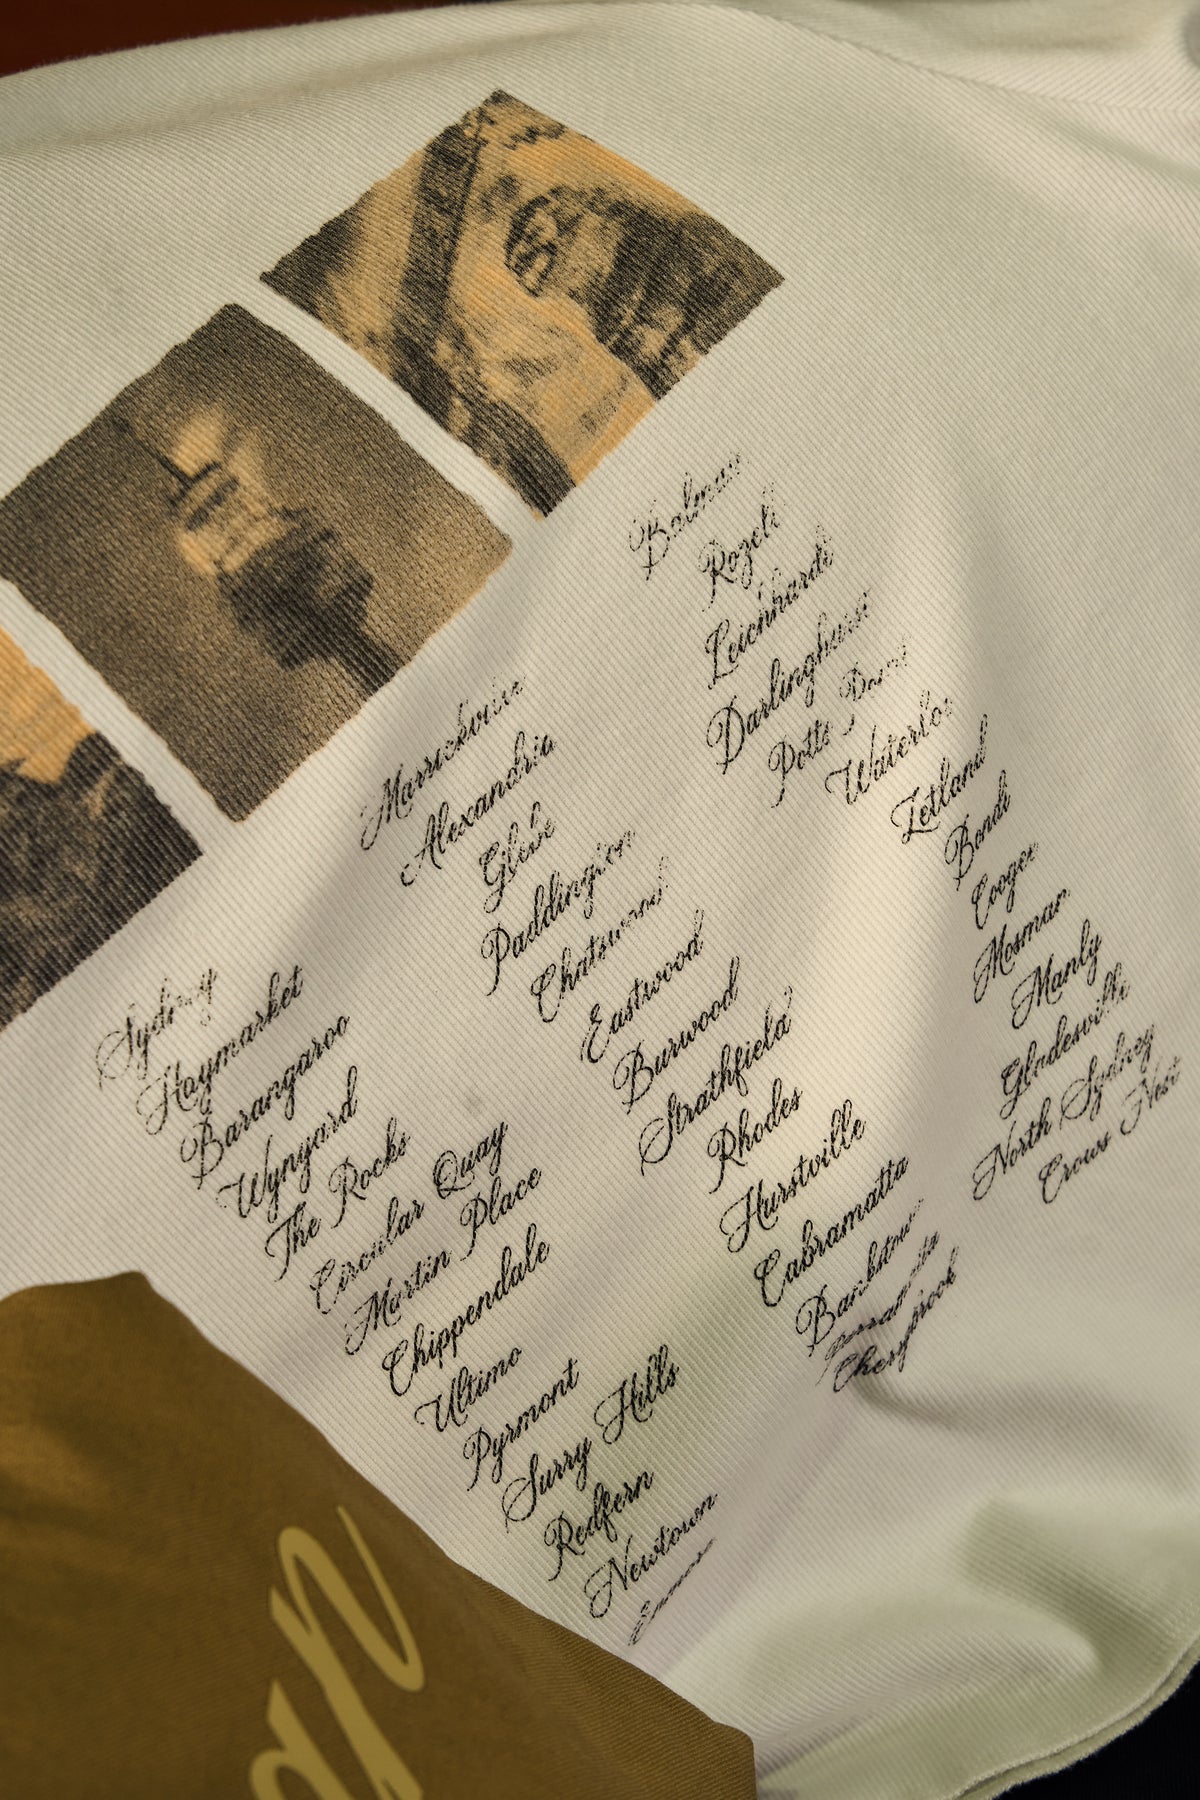 Sydney
Haymarket
Barangaroo
Wynyard
The Rocks
Circular Quay
Martin Place
Chippendale
Ultimo
Pyrmont
Surry Hills
Redfern
Newtown
Marrickville
Alexandria
Glebe
Paddington
Chatswood
Eastwood
Burwood
Strathfield
Rhodes
Hurstville
Cabramatta
Bankstown
Parramatta
Cherybrook
Balmain
Rozell
Leichhardt
Darlinghurst
Potts
Waterloo
Zetland
Bondi
Coogee
Mosman
Manly
Gladesville
North Sydney
Crows Nest